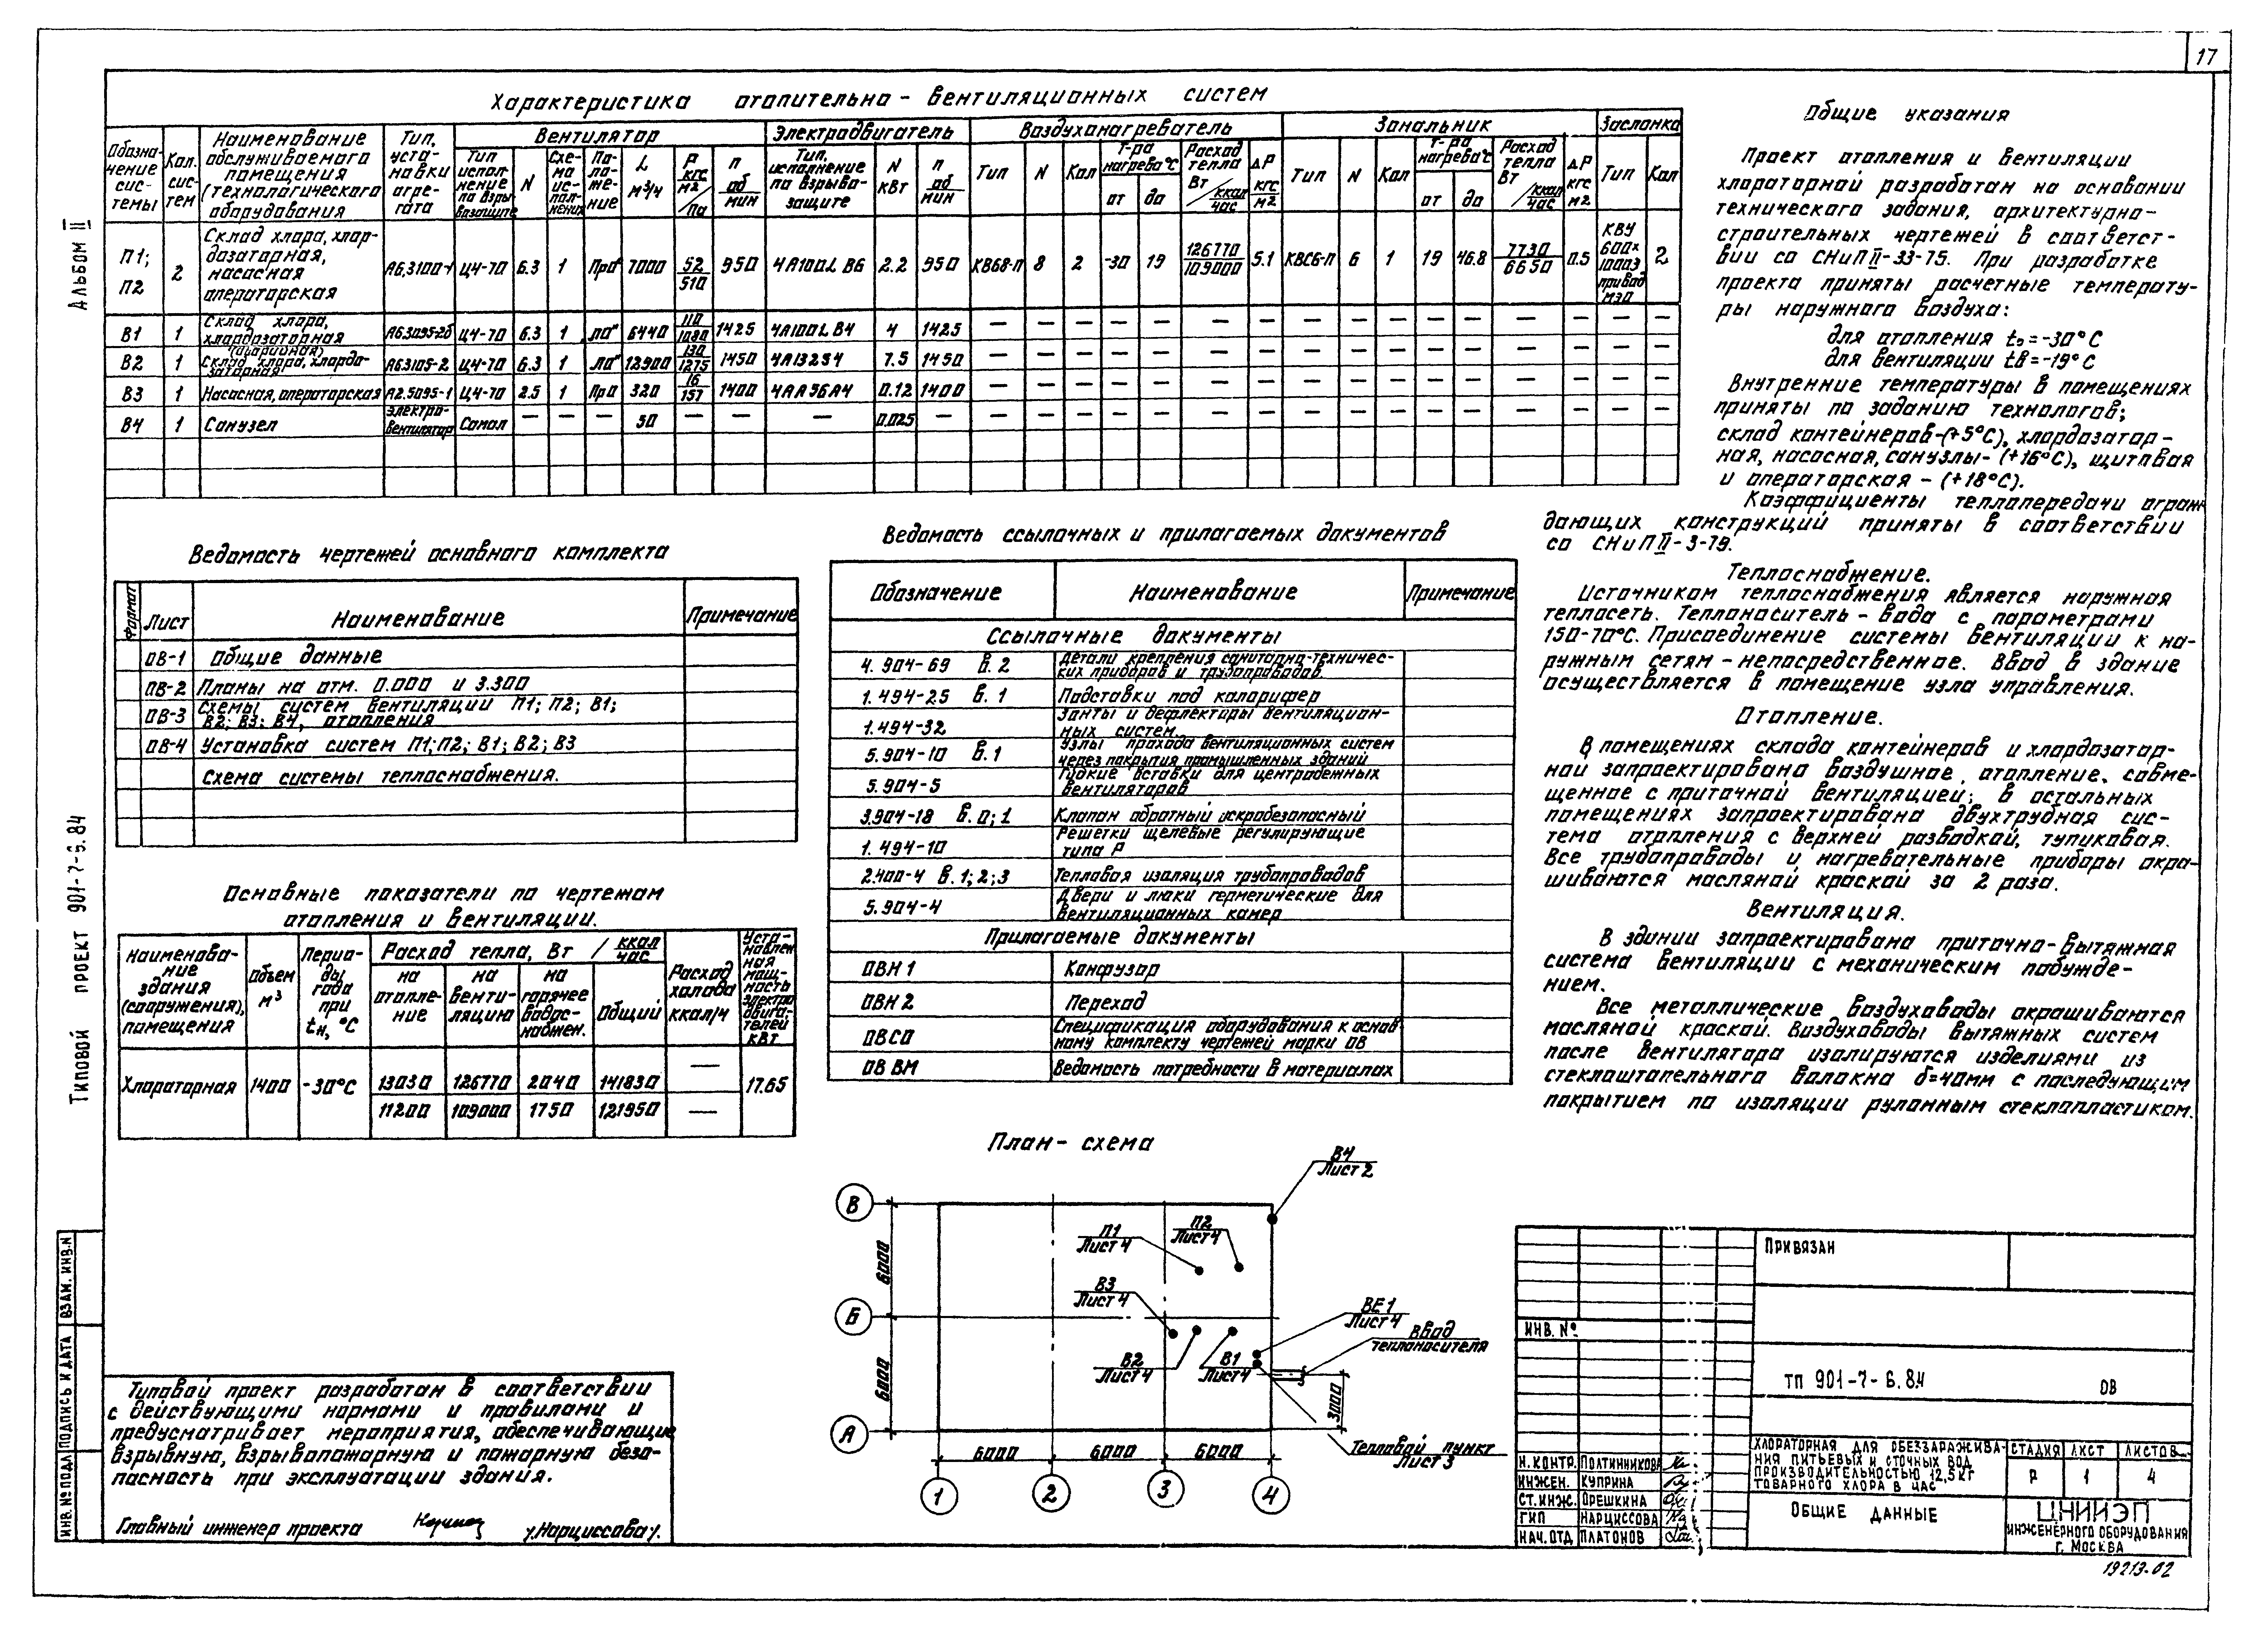 17
Характеристика отопительно - вентиляционных систем
Обозначение системы
Кол. систем
Наименование обслуживаемого помещения (технологического оборудования)
Тип, установки агрегата
Вентилятор
Тип исполнение по взрывозащите
N
Схема исполнения
Положение
L м³/ч
P кгс/м2 / Па
n об/мин
Электродвигатель
Тип, исполнение по взрывозащите
N кВт
n об/мин
Воздухонагреватель
Тип
N
Кол
Т-ра нагрева °С
от
до
Расход тепла Вт / ккал/час
ΔP кгс/м2
Зональник
Тип
N
Кол
Т-ра нагрева °С
от
до
Расход тепла Вт / ккал/час
ΔP кгс/м2
Заслонка
Тип
Кол
П1; П2 2 Склад хлора, хлордозаторная, насосная операторская А6,3100-1 Ц4-70 6.3 1 Пр0° 7000 52/510 950 4А100L В6 2.2 950 КВБ8-П 8 2 -30 19 126770/109000 5.1 КВСБ-П 6 1 19 46.8 7730/6650 0.5 КВУ 600х1000З привод МЭО 2
В1 1 Склад хлора, хлордозаторная А6.3095-2б Ц4-70 6.3 1 Л0° 6440 110/1080 1425 4А100L В4 4 1425 — — — — — — — — — — — — — — — —
В2 1 (аварийная) Склад хлора, хлордозаторная А6.3105-2 Ц4-70 6.3 1 Л0° 12900 130/1275 1450 4А132S4 7.5 1450 — — — — — — — — — — — — — — — —
В3 1 Насосная, операторская А2.5095-1 Ц4-70 2.5 1 Пр0 320 16/157 1400 4АА56А4 0.12 1400 — — — — — — — — — — — — — — — —
В4 1 Санузел Электровентилятор Самал — — — 50 — — — 0.025 — — — — — — — — — — — — — — — — —
Общие указания
Проект отопления и вентиляции
хлораторной разработан на основании
технического задания, архитектурно-
строительных чертежей в соответст-
вии со СНиП II-33-75. При разработке
проекта приняты расчетные температу-
ры наружного воздуха:
для отопления tо=-30°С
для вентиляции tв=-19°С
Внутренние температуры в помещениях
приняты по заданию технологов;
склад контейнеров-(+5°С), хлордозатор-
ная, насосная, санузлы- (+16°С), щитовая
и операторская - (+18°С).
Коэффициенты теплопередачи ограж
дающих конструкций приняты в соответствии
со СНиП II-3-79.
Теплоснабжение.
Источником теплоснабжения является наружная
теплосеть. Теплоноситель - вода с параметрами
150-70°С. Присоединение системы вентиляции к на-
ружным сетям - непосредственное. Ввод в здание
осуществляется в помещение узла управления.
Отопление.
В помещениях склада контейнеров и хлордозатор-
ной запроектирована воздушное, отопление, совме-
щенное с приточной вентиляцией; в остальных
помещениях запроектирована двухтрубная сис-
тема отопления с верхней разводкой, тупиковая.
Все трубопроводы и нагревательные приборы окра-
шиваются масляной краской за 2 раза.
Вентиляция.
В здании запроектирована приточно-вытяжная
система вентиляции с механическим побужде-
нием.
Все металлические воздуховоды окрашиваются
масляной краской. Воздуховоды вытяжных систем
после вентилятора изолируются изделиями из
стеклоштапельного волокна δ=40мм с последующим
покрытием по изоляции рулонным стеклопластиком.
Ведомость чертежей основного комплекта
Формат Лист Наименование Примечание
ОВ-1 Общие данные
ОВ-2 Планы на отм. 0.000 и 3.300
ОВ-3 Схемы систем вентиляции П1; П2; В1;
В2; В3; В4, отопления
ОВ-4 Установка систем П1; П2; В1; В2; В3
Схема системы теплоснабжения.
Ведомость ссылочных и прилагаемых документов
Обозначение Наименование Примечание
Ссылочные документы
4. 904-69 в. 2 Детали крепления санитарно-техничес-
ких приборов и трубопроводов
1. 494-25 в. 1 Подставки под калорифер
1. 494-32 Зонты и дефлекторы вентиляцион-
ных систем
5. 904-10 в. 1 Узлы прохода вентиляционных систем
через покрытия промышленных зданий
5. 904-5 Гибкие вставки для центробежных
вентиляторов
3.904-18 в. 0; 1 Клапан обратный искробезопасный
1. 494-10 Решетки щелевые регулирующие
типа Р
2.400-4 в. 1; 2; 3 Тепловая изоляция трубопроводов
5. 904-4 Двери и люки герметические для
вентиляционных камер
Прилагаемые документы
ОВН 1 Конфузор
ОВН 2 Переход
ОВСО Спецификация оборудования к основ
ному комплекту чертежей марки ОВ
ОВ ВМ Ведомость потребности в материалах
Основные показатели по чертежам
отопления и вентиляции.
Наименование здания (сооружения), помещения
Объем м³
Периоды года при tн, °С
Расход тепла, Вт / ккал/час
на отопление
на вентиляцию
на горячее водоснабжен.
Общий
Расход холода ккал/ч
Установленная мощность электродвигателей кВт
Хлораторная 1400 -30°С 13030 126770 2040 141830 — 17.65
11200 109000 1750 121950 —
План- схема
В4
Лист 2
П1
Лист 4
П2
Лист 4
В3
Лист 4
ВЕ1
Лист 4
Ввод
теплоносителя
В2
Лист 4
В1
Лист 4
Тепловой пункт
Лист 3
В
Б
А
6000
6000
3000
6000 6000 6000
1 2 3 4
Типовой проект разработан в соответствии
с действующими нормами и правилами и
предусматривает мероприятия, обеспечивающие
взрывную, взрывопожарную и пожарную безо-
пасность при эксплуатации здания.
Главный инженер проекта /Нарциссова/.
Альбом II
Типовой проект 901-7-6.84
Инв. № подл Подпись и дата Взам. инв. N
Привязан
Инв. №
ТП 901-7-6.84 ОВ
Хлораторная для обеззаражива-
ния питьевых и сточных вод
производительностью 12,5 кг
товарного хлора в час
Стадия Лист Листов
Р 1 4
Н. контр. Полтинникова
Инжен. Куприна
Ст. инж. Орешкина
ГИП Нарциссова
Нач. отд Платонов
Общие данные
ЦНИИЭП
инженерного оборудования
г. Москва
19213-02